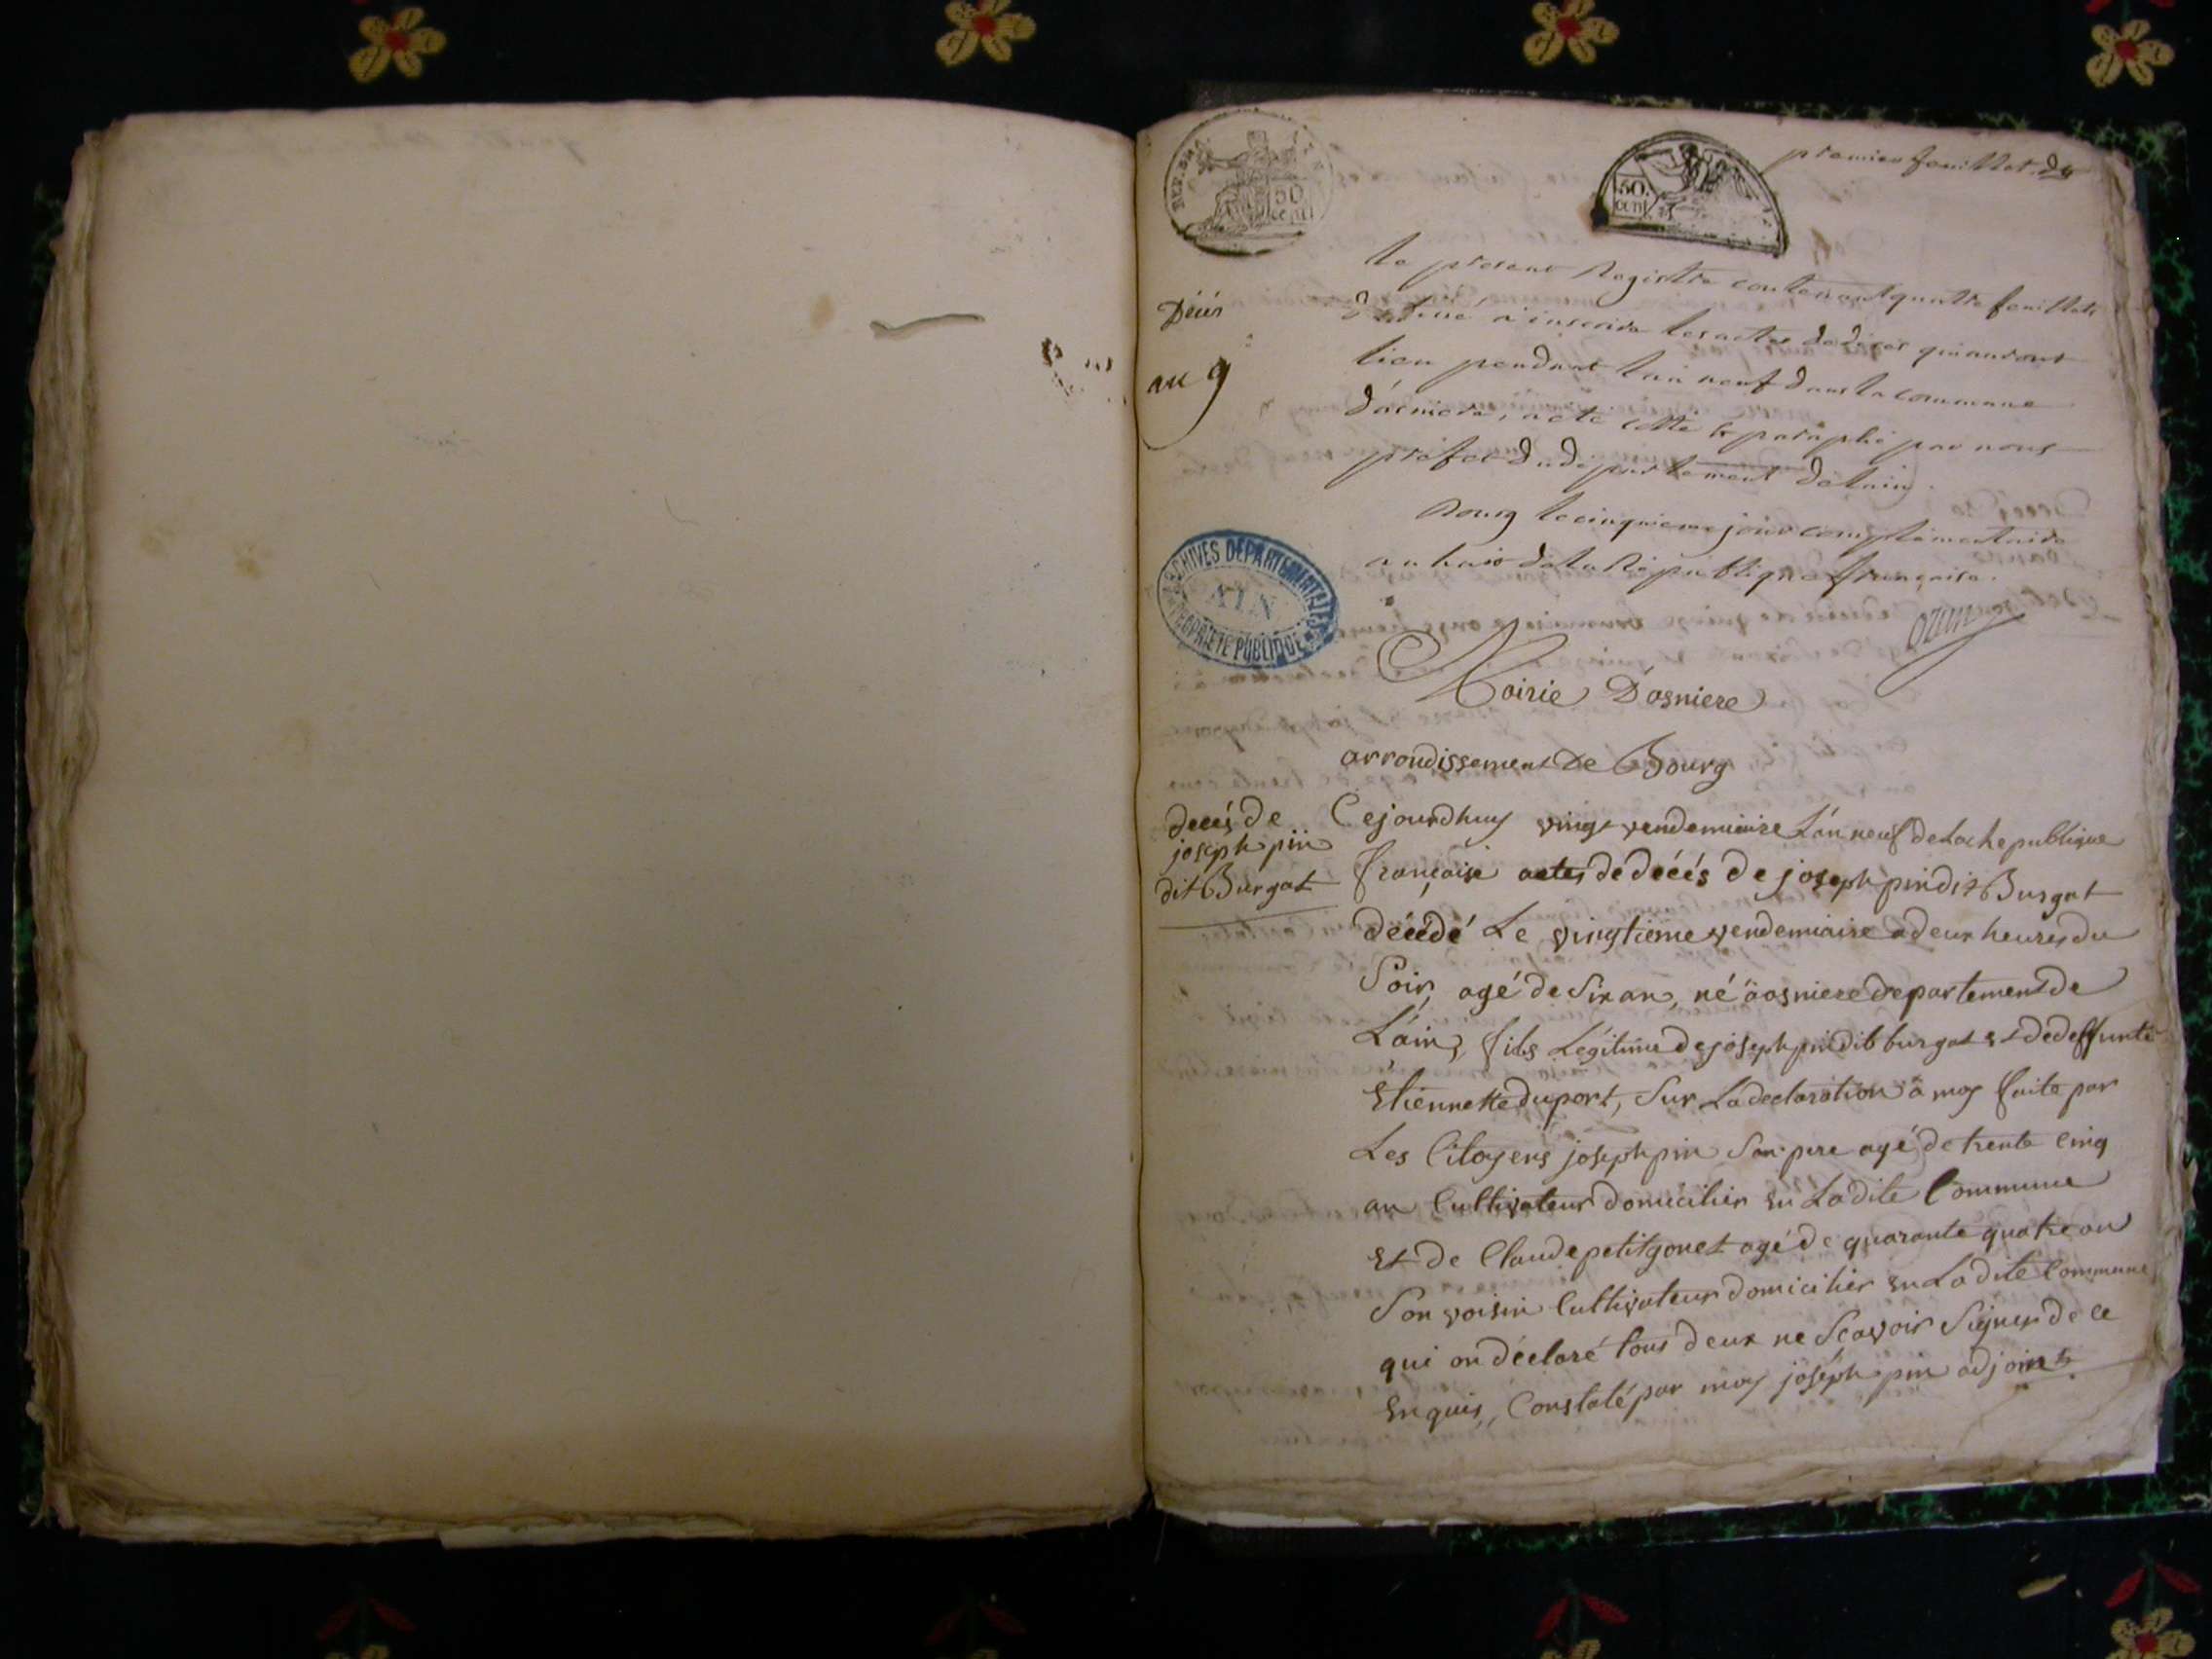 premier feuillet
REP. FRA
50
cent
50.
cent
Décès
an 9
Le present Registre contenant quatre feuillets
Destiné a inscrire les actes de deces qui auront
lieu pendant l'an neuf dans la commune
d'asniere, a été cotté & paraphé par nous
préfet du département de l'ain.
Bourg le cinquieme jour complementaire
an huit de la République française.
ozun
ARCHIVES DÉPARTEMENTALES
AIN
PROPRIÉTÉ PUBLIQUE
Mairie D'asniere
arrondissement De Bourg
décés de
joseph pin
dit Burgat
Cejourdhuy vingt vendemiaire L'an neuf de La Republique
française actes de décés de joseph pin dit Burgat
décédé Le vingtieme vendemiaire a deux heures du
Soir, agé de Six an, né a asniere departement de
L'ain, fils Légitime de joseph pin dit burgat et de deffunte
Etiennette duport, Sur La declaration a moy faite par
Les Citoyens joseph pin Son pere agé de trente cinq
an Cultivateur domicilier En La dite Commune
Et de Claude petitgonet agé de quarante quatre an
Son voisin Cultivateur domicilier En La dite Commune
qui on déclaré tous deux ne Scavoir Signer de ce
Enquis, Constaté par moy joseph pin adjoint